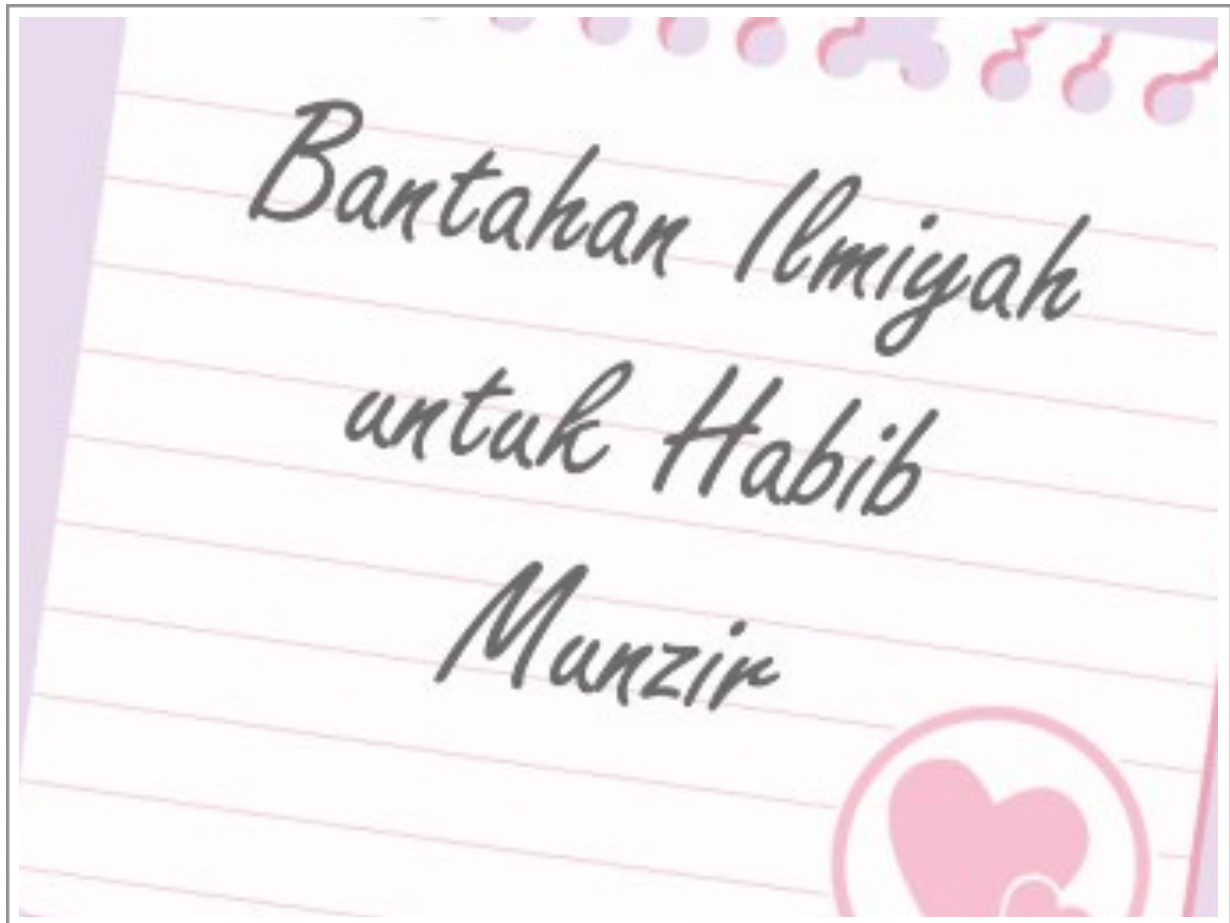 Bantahan Ilmiyah
untuk Habib
Munzir